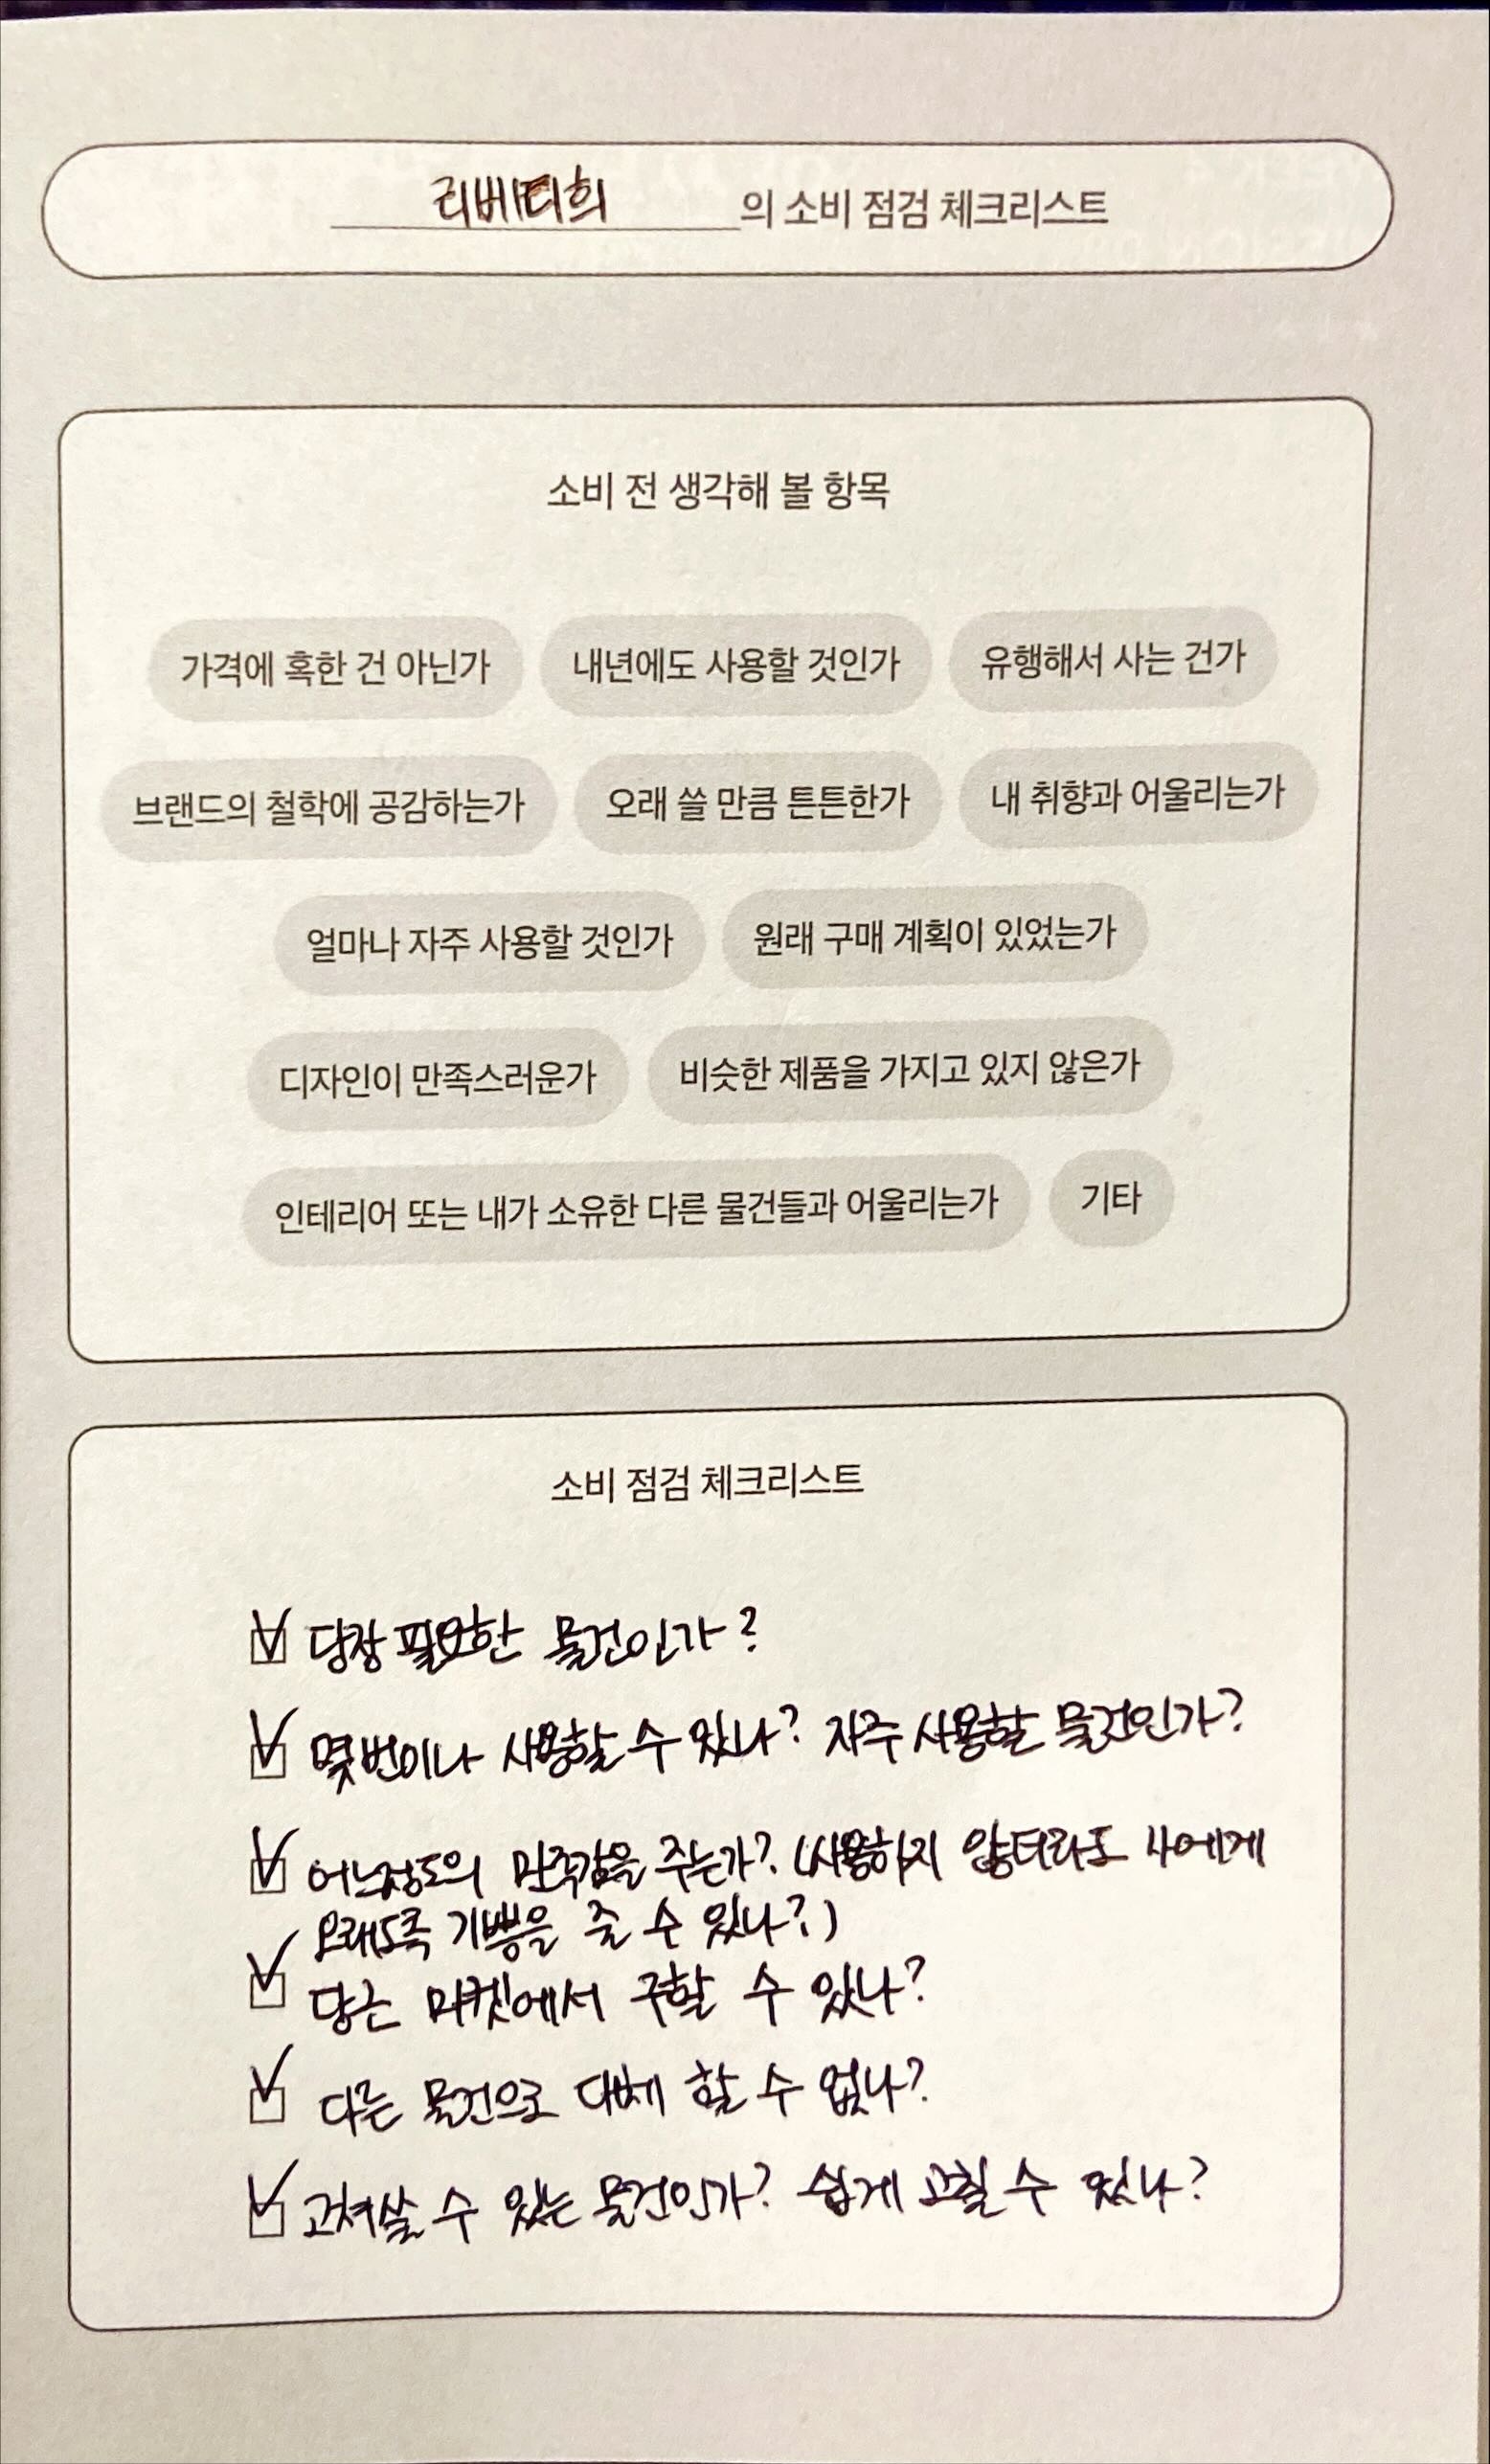 리베티희 의 소비 점검 체크리스트
소비 전 생각해 볼 항목
가격에 혹한 건 아닌가 내년에도 사용할 것인가 유행해서 사는 건가
브랜드의 철학에 공감하는가 오래 쓸 만큼 튼튼한가 내 취향과 어울리는가
얼마나 자주 사용할 것인가 원래 구매 계획이 있었는가
디자인이 만족스러운가 비슷한 제품을 가지고 있지 않은가
인테리어 또는 내가 소유한 다른 물건들과 어울리는가 기타
소비 점검 체크리스트
당장 필요한 물건인가?
몇번이나 사용할 수 있나? 자주 사용할 물건인가?
어느정도의 만족감을 주는가? (사용하지 않더라도 나에게
오래도록 기쁨을 줄 수 있나?)
당근 마켓에서 구할 수 있나?
다른 물건으로 대체 할 수 없나?
고쳐쓸 수 있는 물건인가? 쉽게 고칠 수 있나?